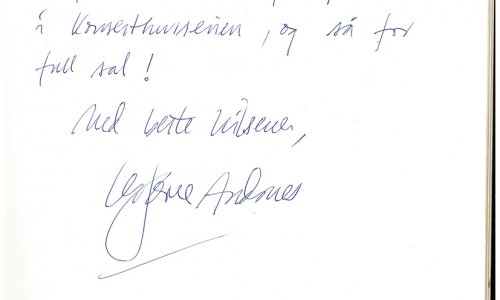 i Konserthusserien, og så for
full sal!
Med beste hilsener,
Leif Ove Andsnes